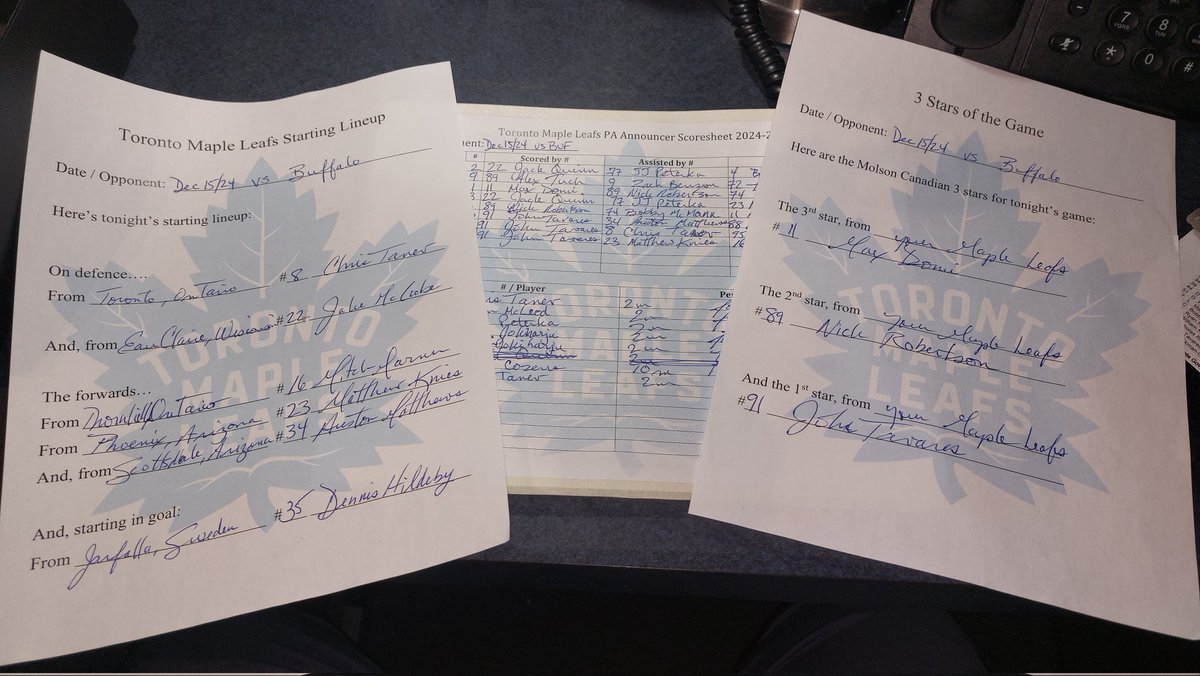 Toronto Maple Leafs Starting Lineup
Date / Opponent: Dec 15/24 vs Buffalo
Here's tonight's starting lineup:
On defence....
From Toronto, Ontario #8 Chris Tanev
And, from Eau Claire, Wisconsin #22 Jake McCabe
The forwards...
From Thornhill, Ontario #16 Mitch Marner
From Phoenix, Arizona #23 Matthew Knies
And, from Scottsdale, Arizona #34 Auston Matthews
And, starting in goal:
From Jarfalla, Sweden #35 Dennis Hildeby
TORONTO
MAPLE
LEAFS
Toronto Maple Leafs PA Announcer Scoresheet 2024-2
nent: Dec 15/24 vs BUF
# Scored by # Assisted by #
22 Jack Quinn 77 JJ Peterka 4 B
89 Alex Tuch 9 Zach Benson 72
11 Max Domi 89 Nick Robertson 74
22 Jack Quinn 77 JJ Peterka 23
89 Nick Robertson 74 Bobby McMann 11
91 John Tavares 34 Auston Matthews 88
91 John Tavares 8 Chris Tanev 95
91 John Tavares 23 Matthew Knies 16
# / Player Pe
is Tanev 2 m
McLeod 2
Peterka 2m
Jokiharju 2m
Jokiharju 2m
Cozens 10 m
Tanev 2m
TORONTO
MAPLE
LEAFS
3 Stars of the Game
Date / Opponent: Dec 15/24 vs Buffalo
Here are the Molson Canadian 3 stars for tonight's game:
The 3rd star, from your Maple Leafs
# 11 Max Domi
The 2nd star, from your Maple Leafs
#89 Nick Robertson
And the 1st star, from your Maple Leafs
#91 John Tavares
TORONTO
MAPLE
LEAFS
7 PQRS 8 TUV
* 0 #